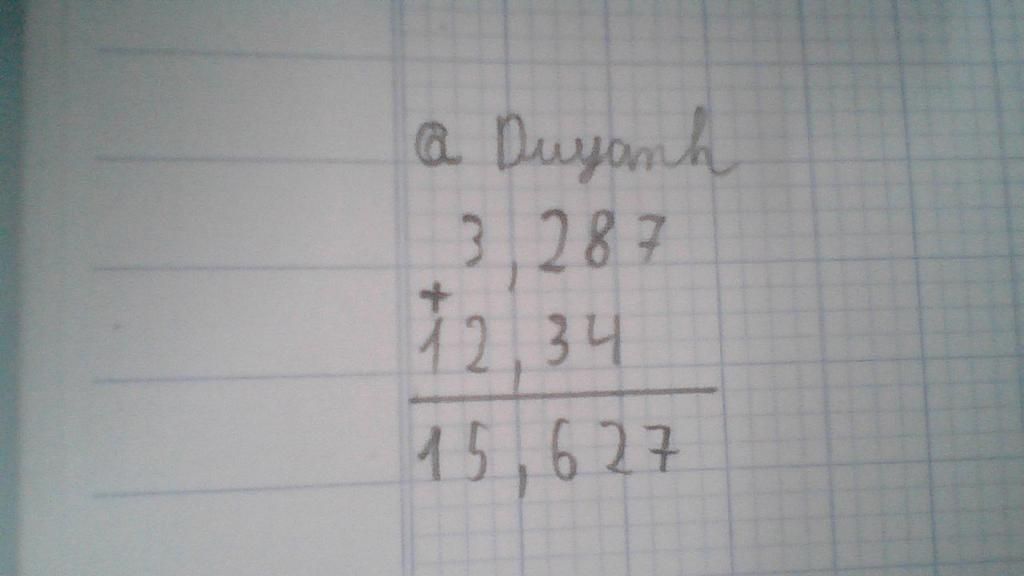 @ Duyanh
3,287
+
12,34
15,627